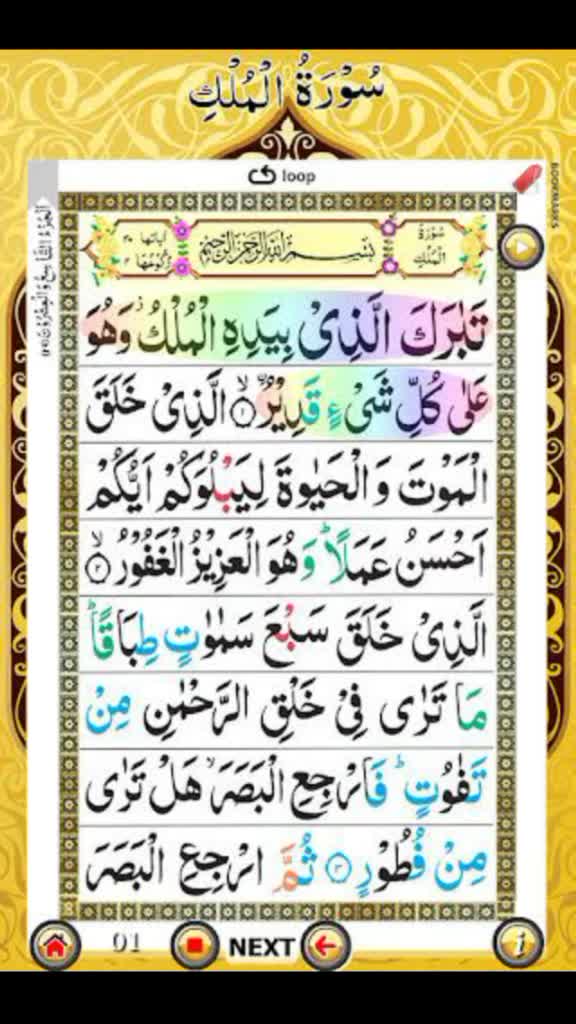 سُوْرَةُ الْمُلْكِ
loop
BOOKMARKS
سُوْرَةُ الْمُلْكِ
بِسْمِ اللّٰهِ الرَّحْمٰنِ الرَّحِيْمِ
اٰيَاتُهَا ٣٠
رُكُوْعُهَا ٢
تَبٰرَكَ الَّذِیْ بِیَدِهِ الْمُلْكُ ؗ وَهُوَ
عَلٰی كُلِّ شَیْءٍ قَدِیْرُ ۙ﴿۱﴾ الَّذِیْ خَلَقَ
الْمَوْتَ وَ الْحَیٰوةَ لِیَبْلُوَكُمْ اَیُّكُمْ
اَحْسَنُ عَمَلًا ؕ وَهُوَ الْعَزِیْزُ الْغَفُوْرُ ۙ﴿۲﴾
الَّذِیْ خَلَقَ سَبْعَ سَمٰوٰتٍ طِبَاقًا ؕ
مَا تَرٰی فِیْ خَلْقِ الرَّحْمٰنِ مِنْ
تَفٰوُتٍ ؕ فَارْجِعِ الْبَصَرَ ۙ هَلْ تَرٰی
مِنْ فُطُوْرٍ ﴿۳﴾ ثُمَّ ارْجِعِ الْبَصَرَ
01
NEXT
i